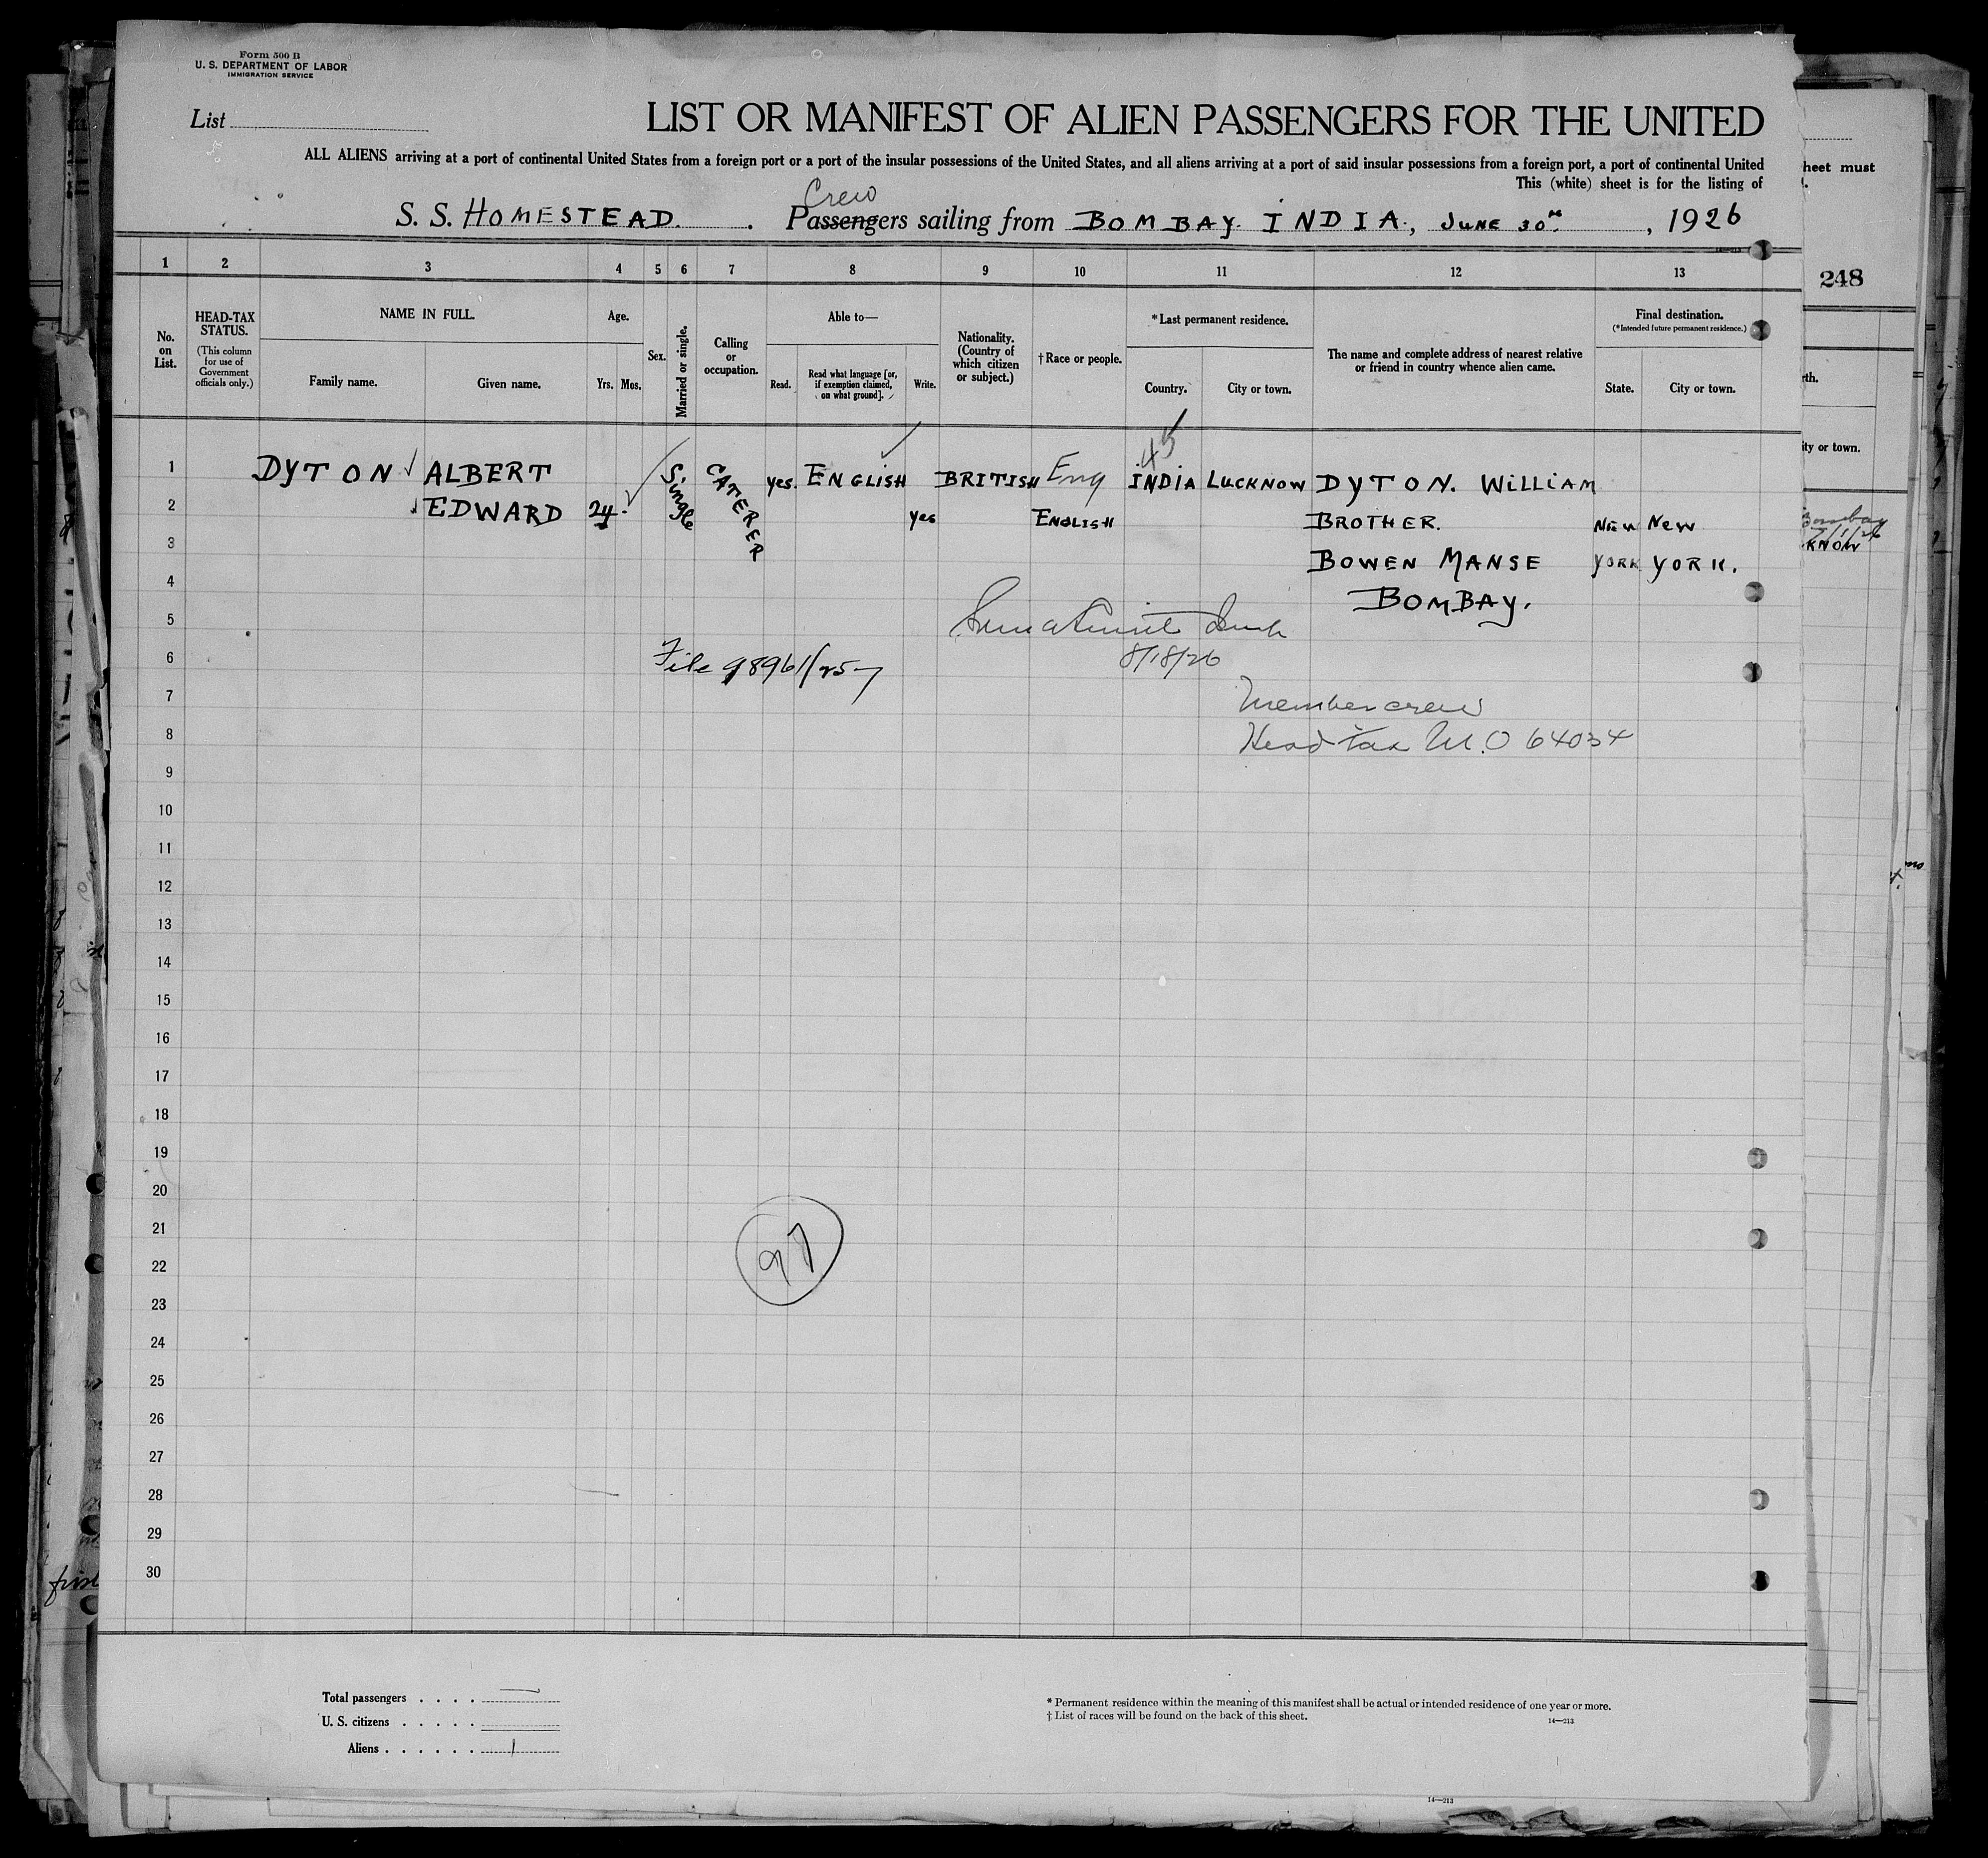 Form 500 B
U. S. DEPARTMENT OF LABOR
IMMIGRATION SERVICE
List
LIST OR MANIFEST OF ALIEN PASSENGERS FOR THE UNITED
ALL ALIENS arriving at a port of continental United States from a foreign port or a port of the insular possessions of the United States, and all aliens arriving at a port of said insular possessions from a foreign port, a port of continental United
This (white) sheet is for the listing of
heet must
Crew
S. S. HOMESTEAD. Passengers sailing from BOMBAY. INDIA., JUNE 30th, 1926
248
1 2 3 4 5 6 7 8 9 10 11 12 13
No. on List.
HEAD-TAX STATUS.
(This column for use of Government officials only.)
NAME IN FULL.
Family name.
Given name.
Age.
Yrs.
Mos.
Sex.
Married or single.
Calling or occupation.
Able to—
Read.
Read what language [or, if exemption claimed, on what ground].
Write.
Nationality. (Country of which citizen or subject.)
† Race or people.
* Last permanent residence.
Country.
City or town.
The name and complete address of nearest relative or friend in country whence alien came.
Final destination.
(*Intended future permanent residence.)
State.
City or town.
rth.
ity or town.
45
1 DYTON ALBERT Single CATERER yes. ENGLISH BRITISH Eng INDIA LUCKNOW DYTON. WILLIAM
2 EDWARD 24 yes ENGLISH BROTHER. NEW NEW
Bombay
7/1/26
KNOW
3 BOWEN MANSE YORK YORK.
4 BOMBAY.
5
8/18/26
6 File 98961/257
7 Member crew
8 Head tax M.O 64034
9
10
11
12
13
14
15
16
17
18
19
20
21
22
97
23
24
25
26
27
28
29
30
first
Total passengers . . . .
U. S. citizens . . . . .
Aliens . . . . . . 1
* Permanent residence within the meaning of this manifest shall be actual or intended residence of one year or more.
† List of races will be found on the back of this sheet.
14—213
14—213